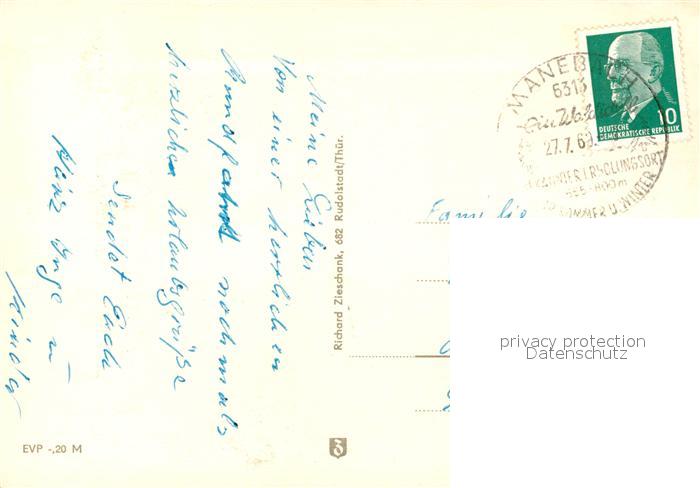 Meine Lieben
Von einer herrlichen
Rundfahrt nochmals
herzliche Urlaubsgrüße
sendet Euch
Inge u
Kinder
EVP -,20 M
Richard Zieschank, 682 Rudolstadt/Thür.
MANEBACH
6313
27.7.6
ERHOLUNGSORT
SOMMER U. WINTER
DEUTSCHE
DEMOKRATISCHE REPUBLIK
10
Familie
privacy protection
Datenschutz